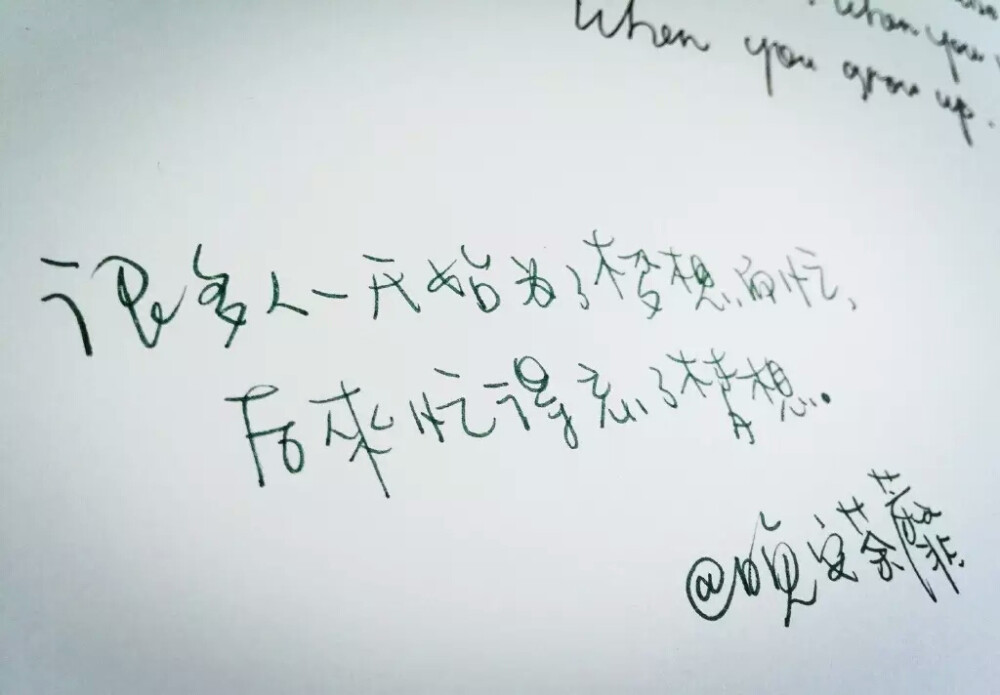 when you
when you grow up.
很多人一开始为了梦想而忙,
后来忙得忘了梦想.
@晚安